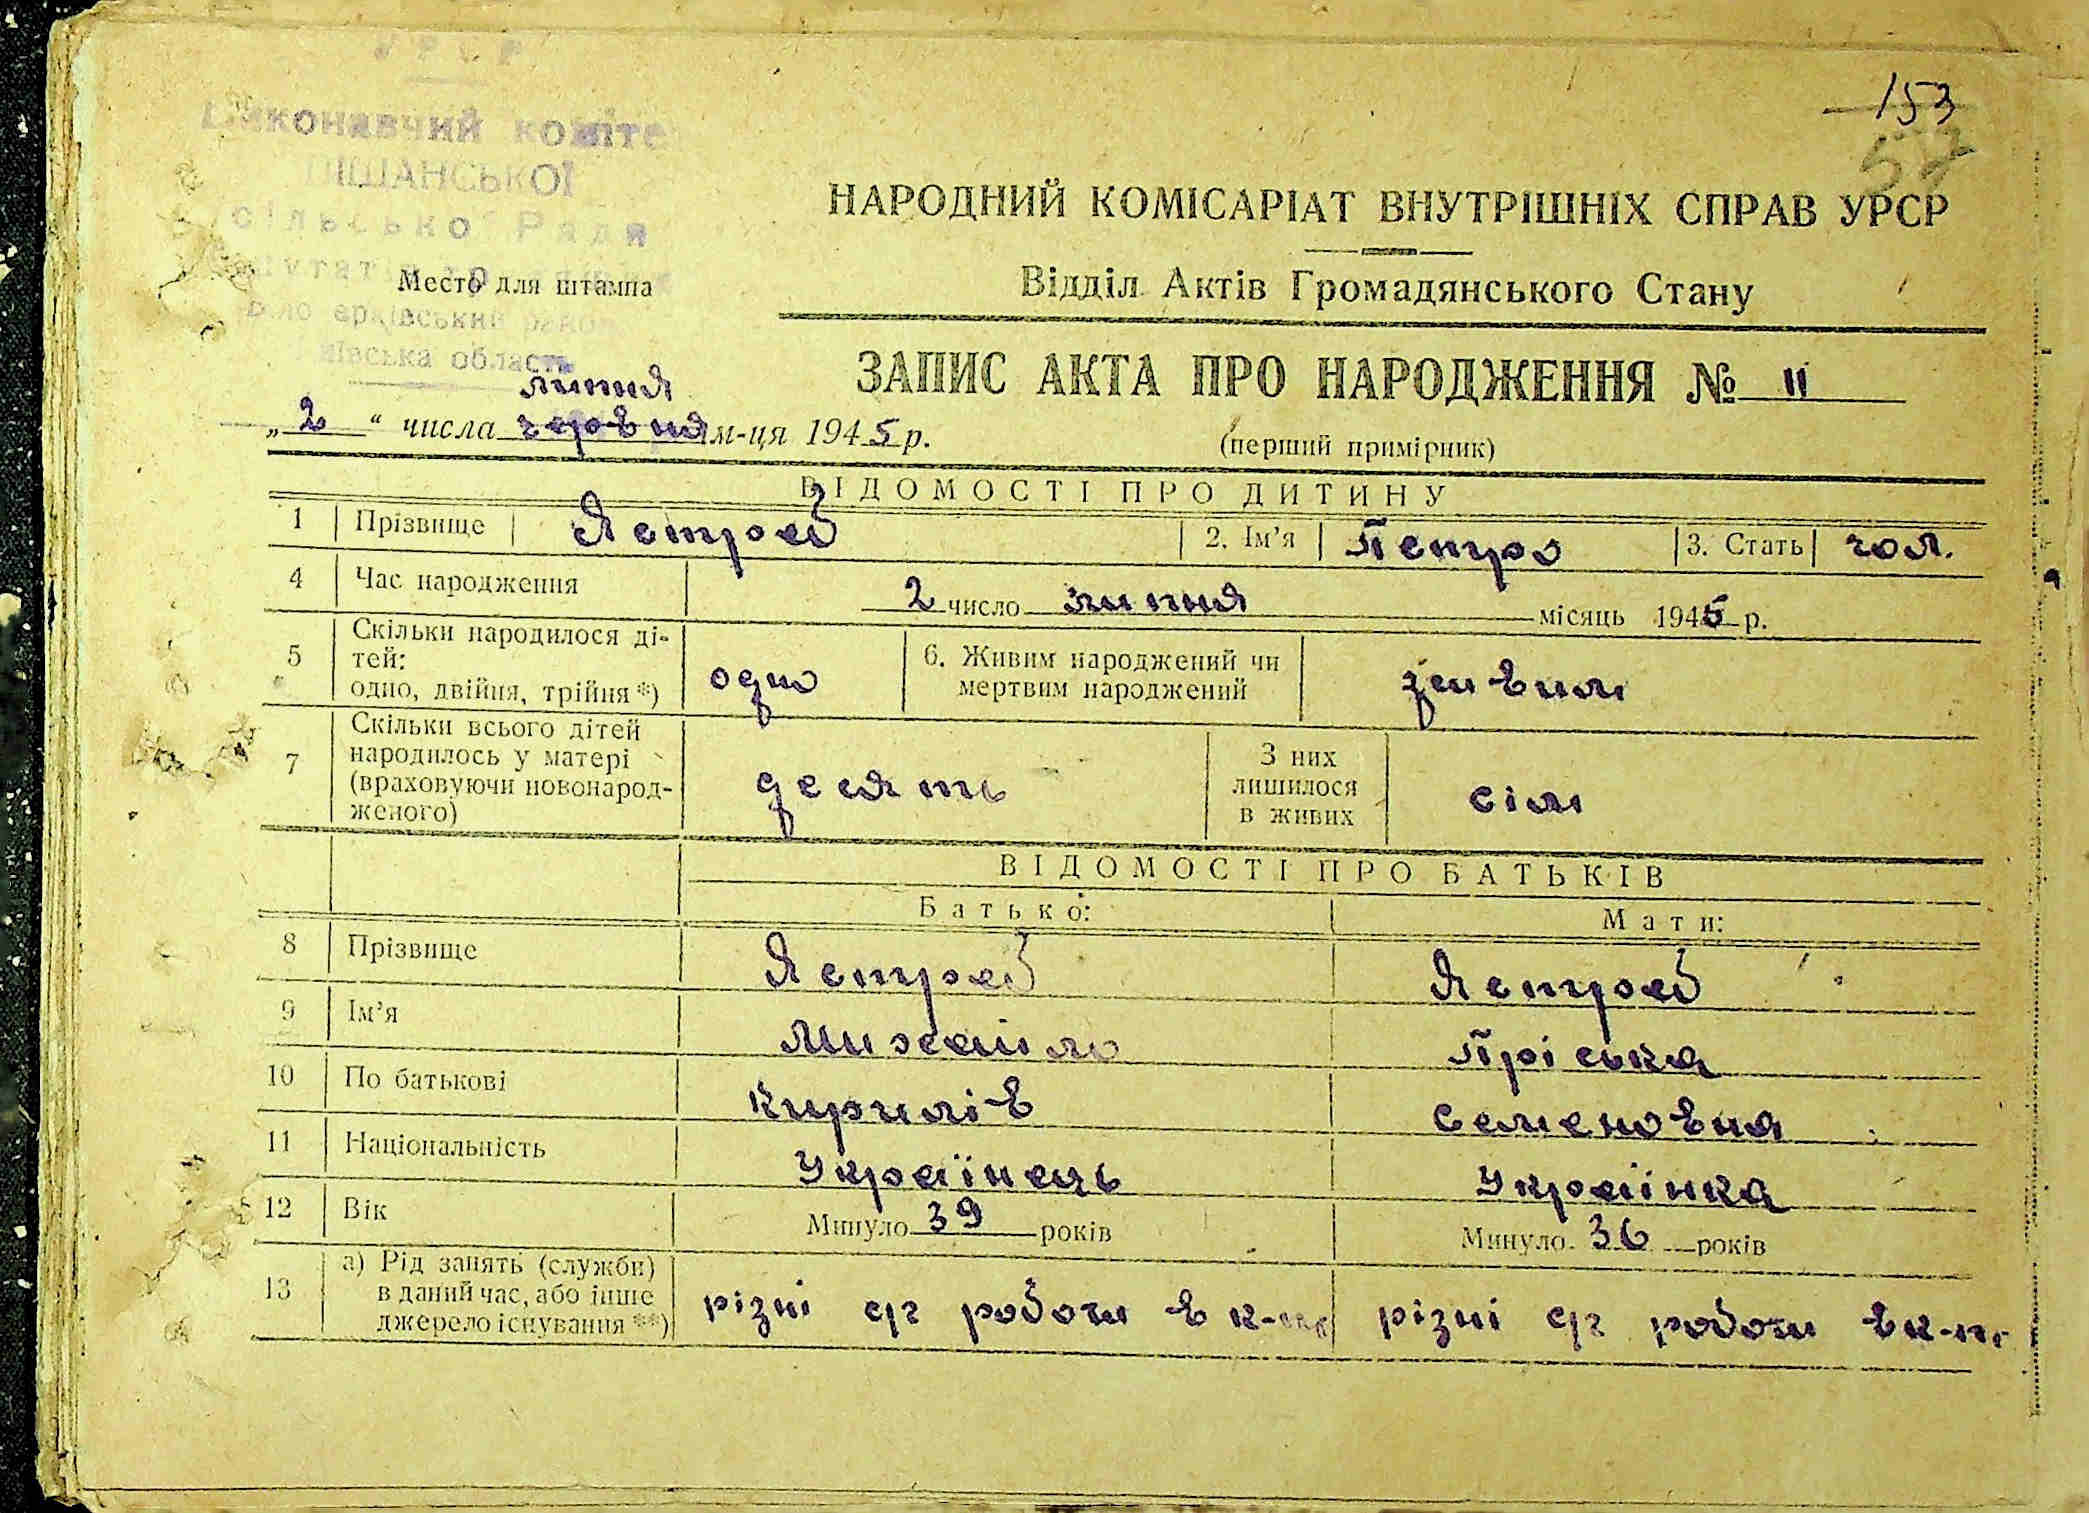 УРСР
Виконавчий комітет
ПІЩАНСЬКОЇ
сільсько Ради
Место для штампа
область
153
57
НАРОДНИЙ КОМІСАРІАТ ВНУТРІШНІХ СПРАВ УРСР
Відділ Актів Громадянського Стану
ЗАПИС АКТА ПРО НАРОДЖЕННЯ № 11
липня
„2“ числа червня м-ця 1945 р.
(перший примірник)
ВІДОМОСТІ ПРО ДИТИНУ
1 Прізвище Ястреб 2. Ім’я Петро 3. Стать чол.
4 Час народження 2 число липня місяць 1945 р.
5 Скільки народилося ді-
тей:
одно, двійня, трійня*) одно 6. Живим народжений чи
мертвим народжений живим
7 Скільки всього дітей
народилось у матері
(враховуючи новонарод-
женого) десять З них
лишилося
в живих сім
ВІДОМОСТІ ПРО БАТЬКІВ
Батько: Мати:
8 Прізвище Ястреб Ястреб
9 Ім’я Михайло Пріська
10 По батькові Кирилів Семеновня
11 Національність Українець Українка
12 Вік Минуло 39 років Минуло 36 років
13 а) Рід занять (служби)
в даний час, або інше
джерело існування**) різні с/г роботи в к-пі різні с/г роботи в к-пі